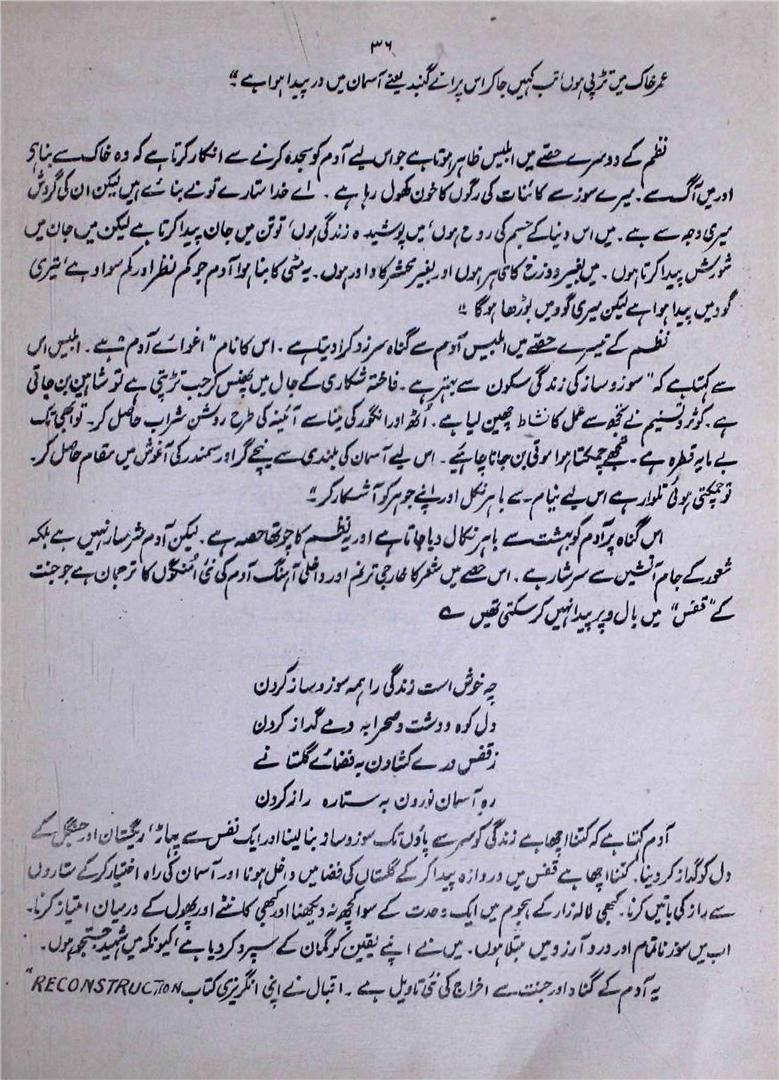 ۳۶
عمر خاک میں تڑپی ہوں تب کہیں جا کر اس پرانے گنبد یعنے آسمان میں در پیدا ہوا ہے ۔"
نظم کے دوسرے حصّے میں ابلیس ظاہر ہوتا ہے جو اس لیے آدم کو سجدہ کرنے سے انکار کرتا ہے کہ وہ خاک سے بنا ہے
اور میں آگ سے ۔ میرے سوز سے کائنات کی رگوں کا خون کھول رہا ہے ۔ اے خدا ستارے تو نے بنائے ہیں لیکن ان کی گردش
میری وجہ سے ہے ۔ میں اس دنیا کے جسم کی روح ہوں، میں پوشیدہ زندگی ہوں، تو تن میں جان پیدا کرتا ہے لیکن میں جان میں
شورش پیدا کرتا ہوں ۔ میں بغیر دوزخ کا قاہر ہوں اور بغیر محشر کا داور ہوں ۔ یہ مٹی کا بنا ہوا آدم جو کم نظر اور کم سواد ہے، تیری
گود میں پیدا ہوا ہے لیکن میری گود میں بوڑھا ہوگا ۔"
نظم کے تیسرے حصّے میں ابلیس آدم سے گناہ سرزد کرا دیتا ہے ۔ اس کا نام "اغوائے آدم" ہے ۔ ابلیس اس
سے کہتا ہے کہ "سوز و ساز کی زندگی سکون سے بہتر ہے ۔ فاختہ شکاری کے جال میں پھنس کر جب تڑپتی ہے تو شاہین بن جاتی
ہے ۔ کوثر و تسنیم نے تجھ سے عمل کا نشاط چھین لیا ہے ۔ اُٹھ اور انگور کی بنا سے آئینہ کی طرح روشن شراب حاصل کر ۔ تو ابھی تک
بے مایہ قطرہ ہے ۔ تجھے چمکتا ہوا موتی بن جانا چاہیے ۔ اس لیے آسمان کی بلندی سے نیچے گر اور سمندر کی آغوش میں مقام حاصل کر ۔
تو چمکتی ہوئی تلوار ہے اس لیے نیام سے باہر نکل اور اپنے جوہر کو آشکار کر ۔"
اس گناہ پر آدم کو بہشت سے باہر نکال دیا جاتا ہے اور یہ نظم کا چوتھا حصہ ہے ۔ لیکن آدم شرمسار نہیں ہے بلکہ
شعور کے جام آتشیں سے سرشار ہے ۔ اس حصے میں شعر کا خارجی ترنم اور داخلی آہنگ آدم کی نئی اُمنگوں کا ترجمان ہے جو جنت
کے "قفس" میں بال و پر پیدا نہیں کر سکتی تھیں ؎
چہ خوش است زندگی را ہمہ سوز و ساز کردن
دل کوہ و دشت و صحرا بہ دمے گداز کردن
ز قفس درے کشادن بہ فضائے گلستانے
رہِ آسمان نوردن بہ ستارہ راز کردن
آدم کہتا ہے کہ کتنا اچھا ہے زندگی کو سر سے پاؤں تک سوز و ساز بنا لینا اور ایک نفس سے پہاڑ، ریگستان اور جنگل کے
دل کو گداز کر دینا ۔ کتنا اچھا ہے قفس میں دروازہ پیدا کر کے گلستاں کی فضا میں داخل ہونا اور آسمان کی راہ اختیار کرکے ستاروں
سے راز کی باتیں کرنا ۔ کبھی لالہ زار کے ہجوم میں ایک وحدت کے سوا کچھ نہ دیکھنا اور کبھی کانٹے اور پھول کے درمیان امتیاز کرنا ۔
اب میں سوز ناتمام اور درد آرزو میں مبتلا ہوں ۔ میں نے اپنے یقین کو گمان کے سپرد کر دیا ہے کیونکہ میں شہید جستجو ہوں ۔
یہ آدم کے گناہ اور جنت سے اخراج کی نئی تاویل ہے ۔ اقبال نے اپنی انگریزی کتاب "RECONSTRUCTION